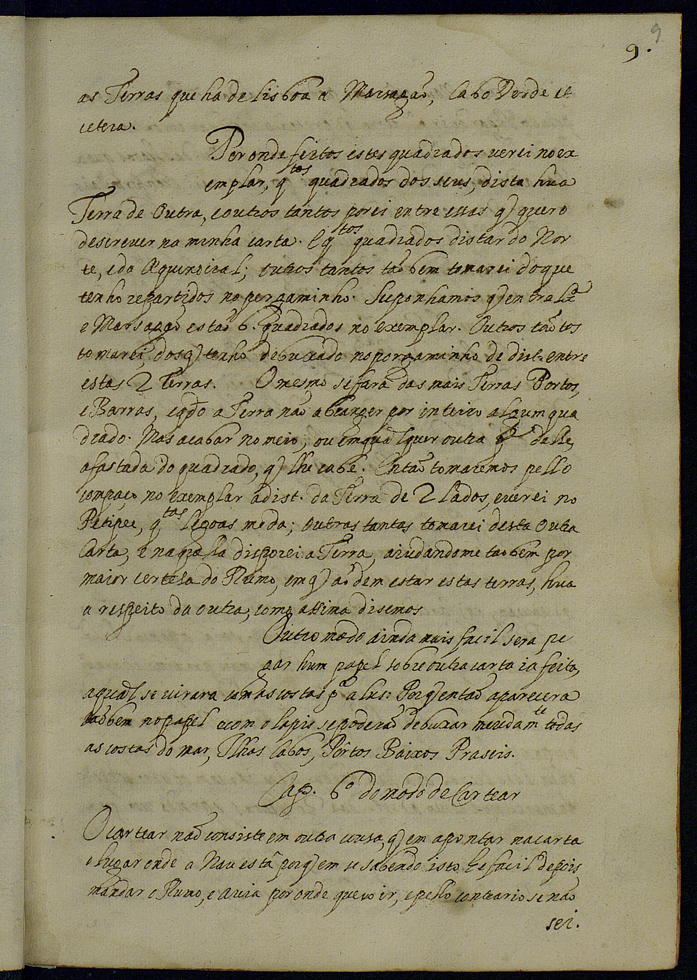 9.
9
as Terras que ha de Lisboa a Marzagaõ, Cabo Verde et
cetera.
Por onde feitos estes quadrados verei no ex
emplar, q.tos quadrados dos seus, dista hua
Terra de Outra, e outros tantos porei entre estas q̃ quero
descrever na minha carta. E q.tos quadrados distar do Nor
te, e da Aquinocial; outros tantos taõ bem tomarei do que
tenho repartidos no pergaminho. Suponhamos q̃ entre Lx.ª
e Marsagaõ estaõ 6. quadrados no exemplar. Outros tãtos
tomarei, dos q̃ tenho debuxado no pergaminho de dist.ª entre
estas 2 Terras. O mesmo se fara das mais Terras Portos,
e Barras, e q.do a Terra naõ abranger por inteiro algum qua
drado. Mas acabar no meio, ou em qualquer outra p.te delle,
afastada do quadrado, q̃ lhe cabe. Entaõ tomaremos pello
compaço no exemplar a dist.ª da Terra de 2 Lados, e verei no
Petipee, q.tas legoas moda; outras tantas tomarei desta outra
Carta, e na qual a disporei a Terra, aiudandome taõ bem por
maior certesa do Rumo, em q̃ aõ dem estar estas terras, hua
a respeito da outra, como assima disemos
Outro modo ainda mais facil sera pe
gar hum papel sobre outra carta ia feita,
a qual se virara com as costas p.ª a lus: Porq̃ entaõ aparecera
taõ bem no papel e com o lapis, se poderaõ debuxar meudam.te todas
as costas do mar, Ilhas Cabos, Portos Baixos Praseis.
Cap. 6º do modo de Cartear
O cartear naõ consiste em outra cousa, q̃ em apontar na carta
o lugar onde a Nau està porq̃ em se sabendo isto, he facil depois
mandar o Rumo, e a via por onde quero ir, e pello contrario se naõ
sei.